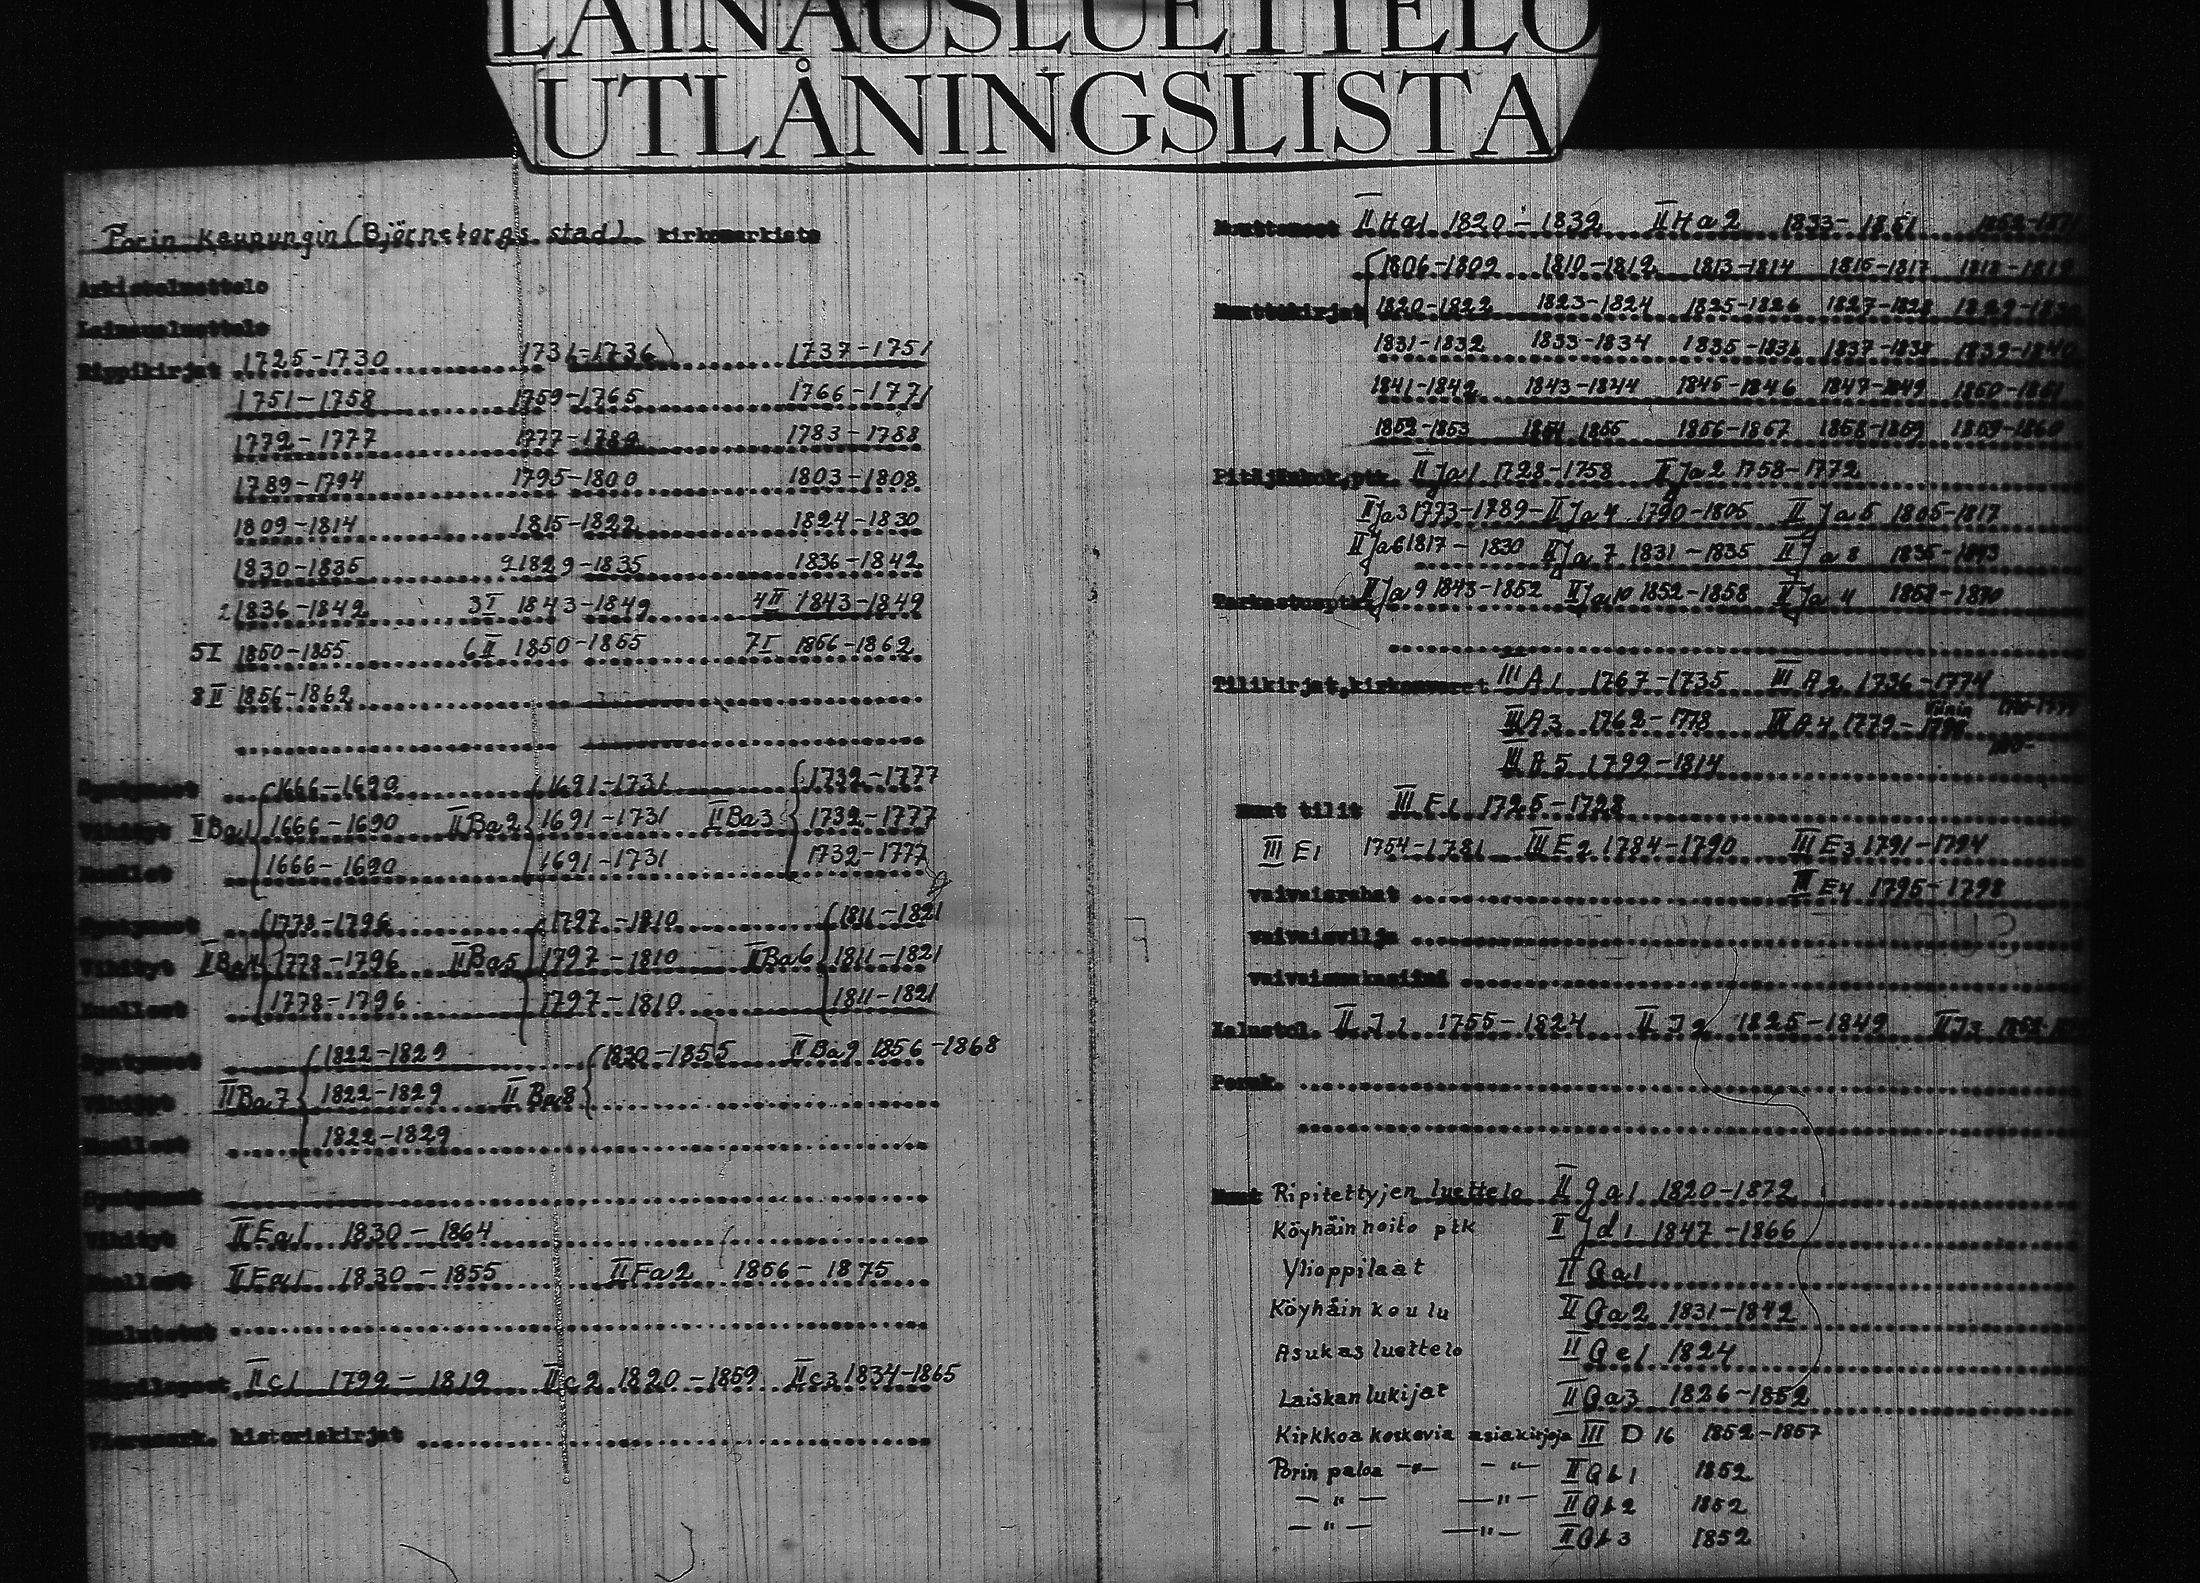 LAINAUSLUETTELO
UTLÅNINGSLISTA
Porin Kaupungin (Björneborgs stad) kirkonarkisto
Arkistoluettelo
Lainausluettelo
Rippikirjat 1725-1730 1731-1736 1737-1751
1751-1758 1759-1765 1766-1771
1772-1777 1777-1782 1783-1788
1789-1794 1795-1800 1803-1808
1809-1814 1815-1822 1824-1830
1830-1835 2 1829-1835 1836-1842
2 1836-1842 3 I 1843-1849 4 II 1843-1849
5 I 1850-1855 6 II 1850-1855 7 I 1856-1862
8 II 1856-1862
Syntyneet 1666-1690 1691-1731 1732-1777
Vihityt II Ba1 1666-1690 II Ba2 1691-1731 II Ba3 1732-1777
Kuolleet 1666-1690 1691-1731 1732-1777
Syntyneet 1778-1796 1797-1810 1811-1821
Vihityt II Ba4 1778-1796 II Ba5 1797-1810 II Ba6 1811-1821
Kuolleet 1778-1796 1797-1810 1811-1821
Syntyneet 1822-1829 1830-1855 II Ba9 1856-1868
Vihityt II Ba7 1822-1829 II Ba8
Kuolleet 1822-1829
Syntyneet
Vihityt II Ea1 1830-1864
Kuolleet II Fa1 1830-1855 II Fa2 1856-1875
Kuulutetut
II c1 1792-1819 II c2 1820-1859 II c3 1834-1865
historiakirjat
Muuttaneet II Ha1 1820-1832 II Ha2 1833-1851
1806-1809 1810-1812 1813-1814 1815-1817 1818-1819
Muuttokirjat 1820-1822 1823-1824 1825-1826 1827-1828 1829-1830
1831-1832 1833-1834 1835-1836 1837-1838 1839-1840
1841-1842 1843-1844 1845-1846 1847-1849 1850-1851
1852-1853 1854 1855 1856-1857 1858-1859 1859-1860
Pitäjänkok.ptk. II Ja1 1728-1758 II Ja2 1758-1772
II Ja3 1773-1789- II Ja4 1790-1805 II Ja5 1805-1817
II Ja6 1817-1830 II Ja7 1831-1835 II Ja8 1835-1843
Tarkastusptk. II Ja9 1843-1852 II Ja10 1852-1858 II Ja 1858-1870
Tilikirjat,kirkonvarat III A1 1767-1735 III A2 1736-1774
III A3 1762-1778 III A4 1779-1798
III A5 1799-1814
Muut tilit III E1 1725-1728
III E1 1754-1781 III E2 1784-1790 III E3 1791-1794
vaivaisrahat III E4 1795-1798
vaivaisvilja
vaivaismakasiini
Kalustol. II J1 1755-1824 II J2 1825-1849 II J3
Peruk.
Muut Ripitettyjen luettelo II ga1 1820-1872
Köyhäinhoito ptk II Jd1 1847-1866
Ylioppilaat II Ga1
Köyhäin koulu II Ga2 1831-1842
Asukasluettelo II Ge1 1824
Laiskanlukijat II Ga3 1826-1852
Kirkkoa koskevia asiakirjoja III D 16 1852-1857
Porin paloa -"- -"- II Gb1 1852
-"- -"- II Gb2 1852
-"- -"- II Gb3 1852